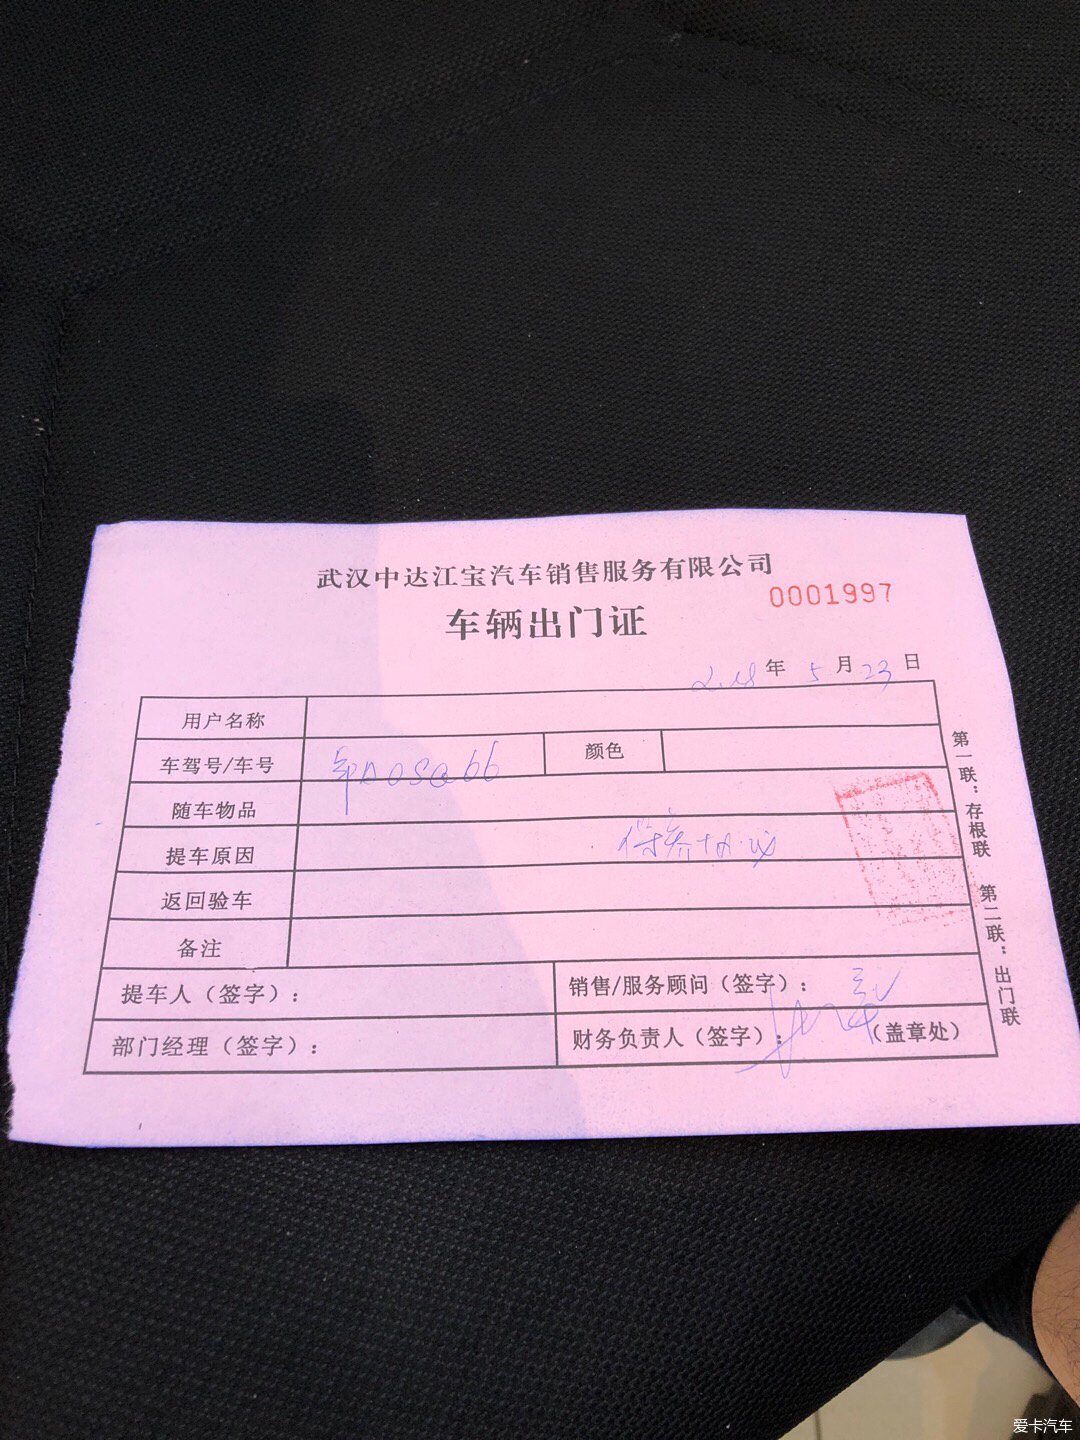 武汉中达江宝汽车销售服务有限公司
0001997
车辆出门证
2018年5月23日
用户名称
车驾号/车号
颜色
随车物品
提车原因 保养
返回验车
备注
提车人（签字）：
销售/服务顾问（签字）：
部门经理（签字）：
财务负责人（签字）：
（盖章处）
第一联：存根联
第二联：出门联
爱卡汽车